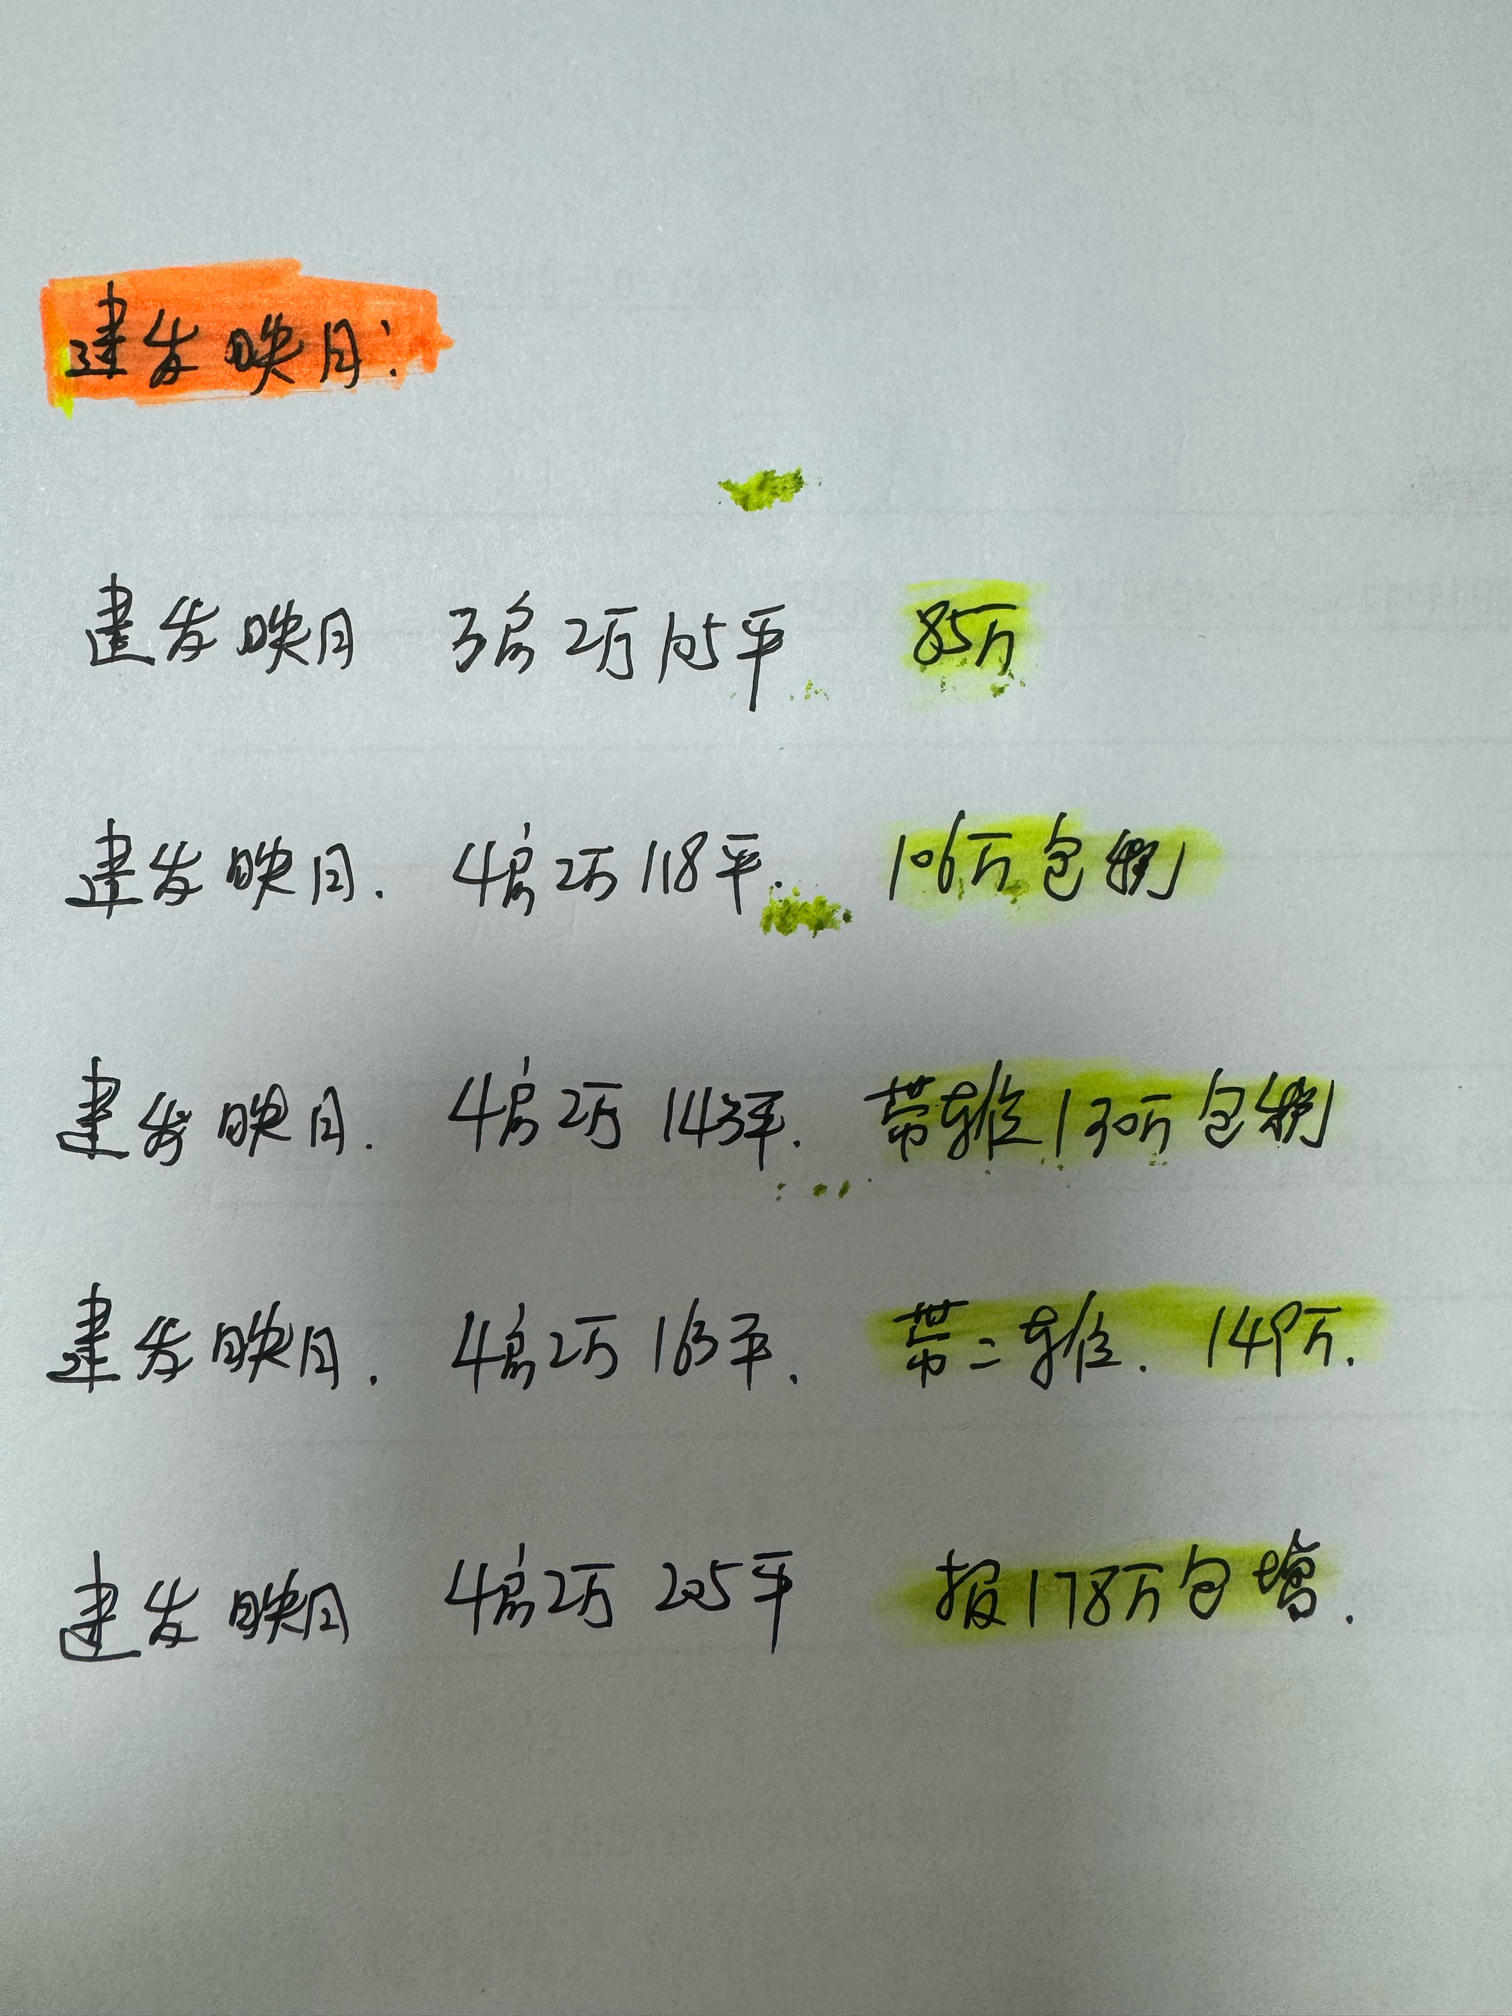 建发映月:
建发映月 3房2万105平 85万
建发映月. 4房2万118平. 106万包税
建发映月. 4房2万143平. 带推130万包税
建发映月. 4房2万163平. 带二推. 149万.
建发映月 4房2万205平 报178万包增.